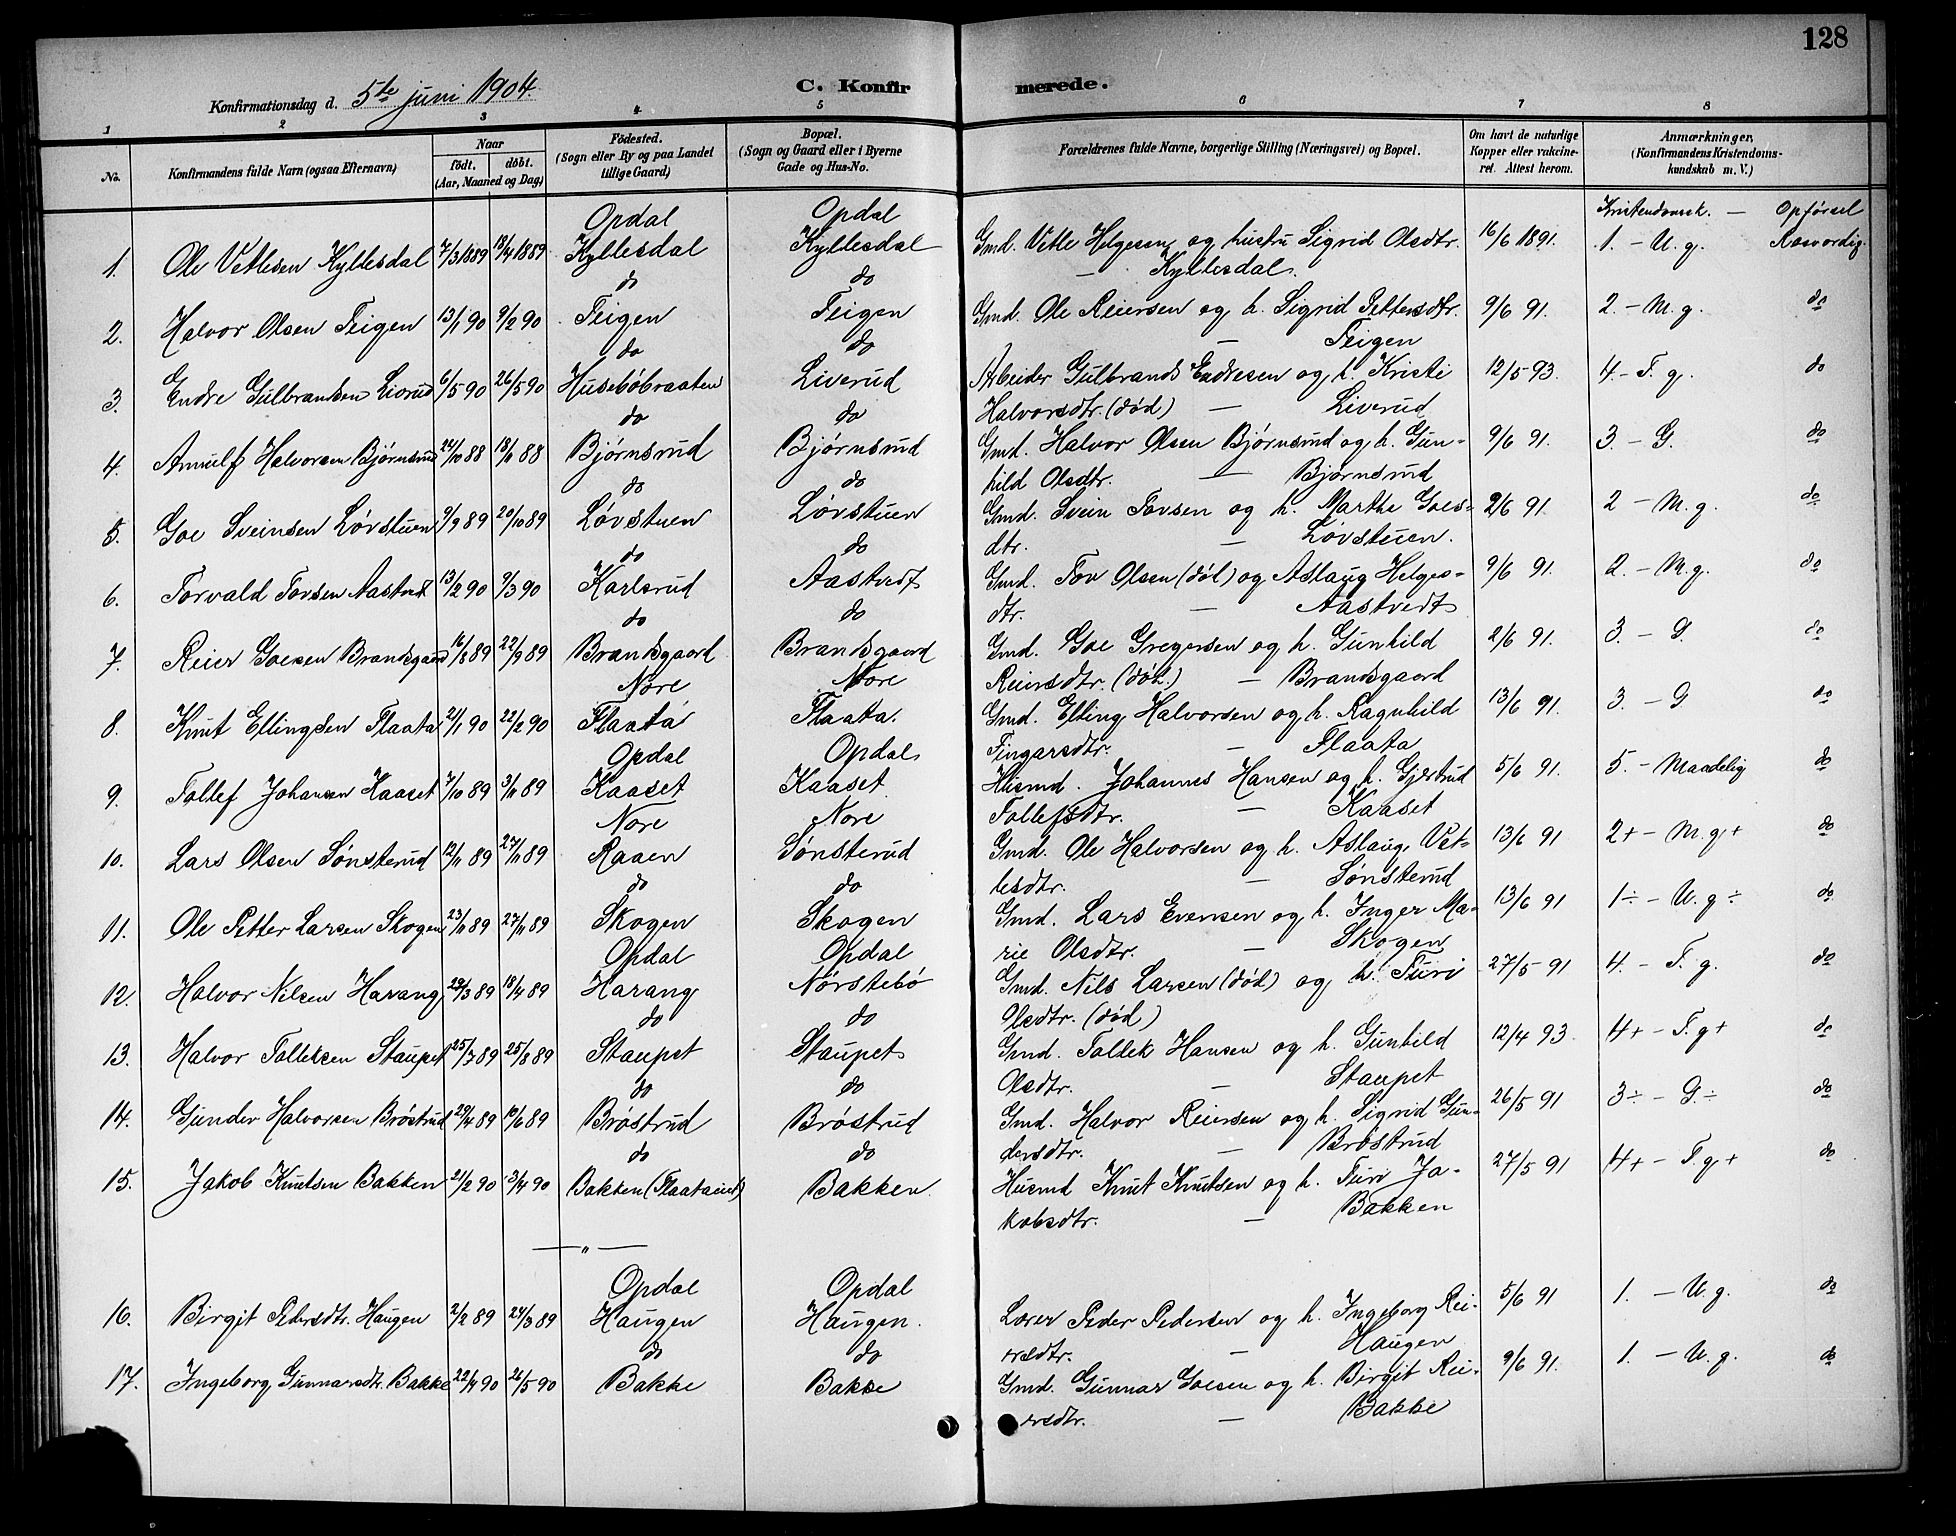 128
Konfirmationsdag d. 5te juni 1904.
C. Konfirmerede.
1 2 3 4 5 6 7 8
No.
Konfirmandens fulde Navn (ogsaa Efternavn)
Naar
födt. döbt.
(Aar, Maaned og Dag)
Födested.
(Sogn eller By og paa Landet
tillige Gaard)
Bopæl.
(Sogn og Gaard eller i Byerne
Gade og Hus-No.
Forældrenes fulde Navne, borgerlige Stilling (Næringsvei) og Bopæl.
Om havt de naturlige
Kopper eller vakcine-
ret. Attest herom.
Anmærkninger,
(Konfirmandens Kristendoms-
kundskab m. V.)
Opdal Opdal Kristendomsk. — Opførsel
1. Ole Vetlesen Kyllesdal 7/3 1889 13/4 1889 Kyllesdal Kyllesdal Gmd. Vetle Helgesen og hustru Sigrid Olsdtr. 16/6 1891. 1. - U. g. Rosværdig
do do — Kyllesdal.
2. Halvor Olsen Feigen 13/1 90 9/2 90 Feigen Feigen Gmd. Ole Reiersen og h. Sigrid Pettersdtr. 9/6 91. 2. - M. g. do
do do — Feigen
3. Endre Gulbrandsen Livrud 6/5 90 26/5 90 Husebøbraaten Liverud Arbeider Gulbrand Endresen og h. Kristi 12/5 93. 4. - T. g. do
do do Halvorsdtr. (død) — Liverud
4. Arnulf Halvorsen Bjørnsrud 24/10 88 18/11 88 Bjørnsrud Bjørnsrud Gmd. Halvor Olsen Bjørnsrud og h. Gun- 9/6 91. 3. - G. do
do do hild Olsdtr. — Bjørnsrud
5. Goe Sveinsen Løvstuen 9/9 89 20/10 89 Løvstuen Løvstuen Gmd. Svein Tovsen og h. Marthe Goes- 2/6 91. 2 - M. g. do
do do dtr. — Løvstuen.
6. Torvald Tovsen Aastvet 13/2 90 9/3 90 Karlsrud Aastvedt Gmd. Tov Olsen (død) og Aslaug Helges- 9/6 91. 2. - M. g. do
do do dtr. — Aastvedt
7. Reier Goesen Brandsgaard 16/8 89 22/9 89 Brandsgaard Brandsgaard Gmd. Goe Gregersen og h. Gunhild 2/6 91. 3. - G. do
Nore Nore Reiersdtr. (død.) — Brandsgaard
8. Knut Ellingsen Flaata 2/1 90 22/2 90 Flaata Flaata. Gmd. Elling Halvorsen og h. Ragnhild 13/6 91. 3. - G do
Opdal Opdal Fingarsdtr. — Flaata
9. Tollef Johansen Kaaset 7/10 89 3/11 89 Kaaset Kaaset Husmd. Johannes Hansen og h. Gjertrud 5/6 91. 5. - Maadelig do
Nore Nore Tollefsdtr. — Kaaset
10. Lars Olsen Sønsterud 12/11 89 27/11 89 Raaen Sønsterud Gmd. Ole Halvorsen og h. Aslaug Vet- 13/6 91 2+ - M. g+ do
do do lesdtr. — Sønsterud
11. Ole Petter Larsen Skogen 23/11 89 27/11 89 Skogen Skogen Gmd. Lars Evensen og h. Inger Ma- 13/6 91 1÷ - U. g÷ do
Opdal Opdal rie Olsdtr. — Skogen
12. Halvor Nilsen Harang 29/3 89 18/4 89 Harang Nørstebø Gmd. Nils Larsen (død) og h. Turi 27/5 91 4. - T. g. do
do do Olsdtr. (død)
13. Halvor Tolleksen Staupet 25/7 89 25/8 89 Staupet Staupet Gmd. Tollek Hansen og h. Gunhild 12/4 93. 4+ - T. g+ do
do do Olsdtr. — Staupet
14. Gunder Halvorsen Brøstrud 29/4 89 10/6 89 Brøstrud Brøstrud Gmd. Halvor Reiersen og h. Sigrid Gun- 26/5 91 3÷ - G÷ do
do do dersdtr. — Brøstrud
15. Jakob Knutsen Bakken 21/2 90 13/4 90 Bakken (Flaataeiet) Bakken. Husmd Knut Knutsen og h. Turi Ja- 27/5 91 4+ - T. g+ do
kobsdtr. — Bakken
— " —
Opdal Opdal
16. Birgit Pedersdtr. Haugen 2/2 89 24/3 89 Haugen Haugen. Lærer Peder Pedersen og h. Ingeborg Rei- 5/6 91 1. - U. g. do
do do ersdtr. — Haugen
17. Ingeborg Gunnarsdtr. Bakke 22/4 90 26/5 90 Bakke Bakke Gmd. Gunnar Goesen og h. Birgit Rei- 9/6 91. 1. - U. g. do
ersdtr. — Bakke